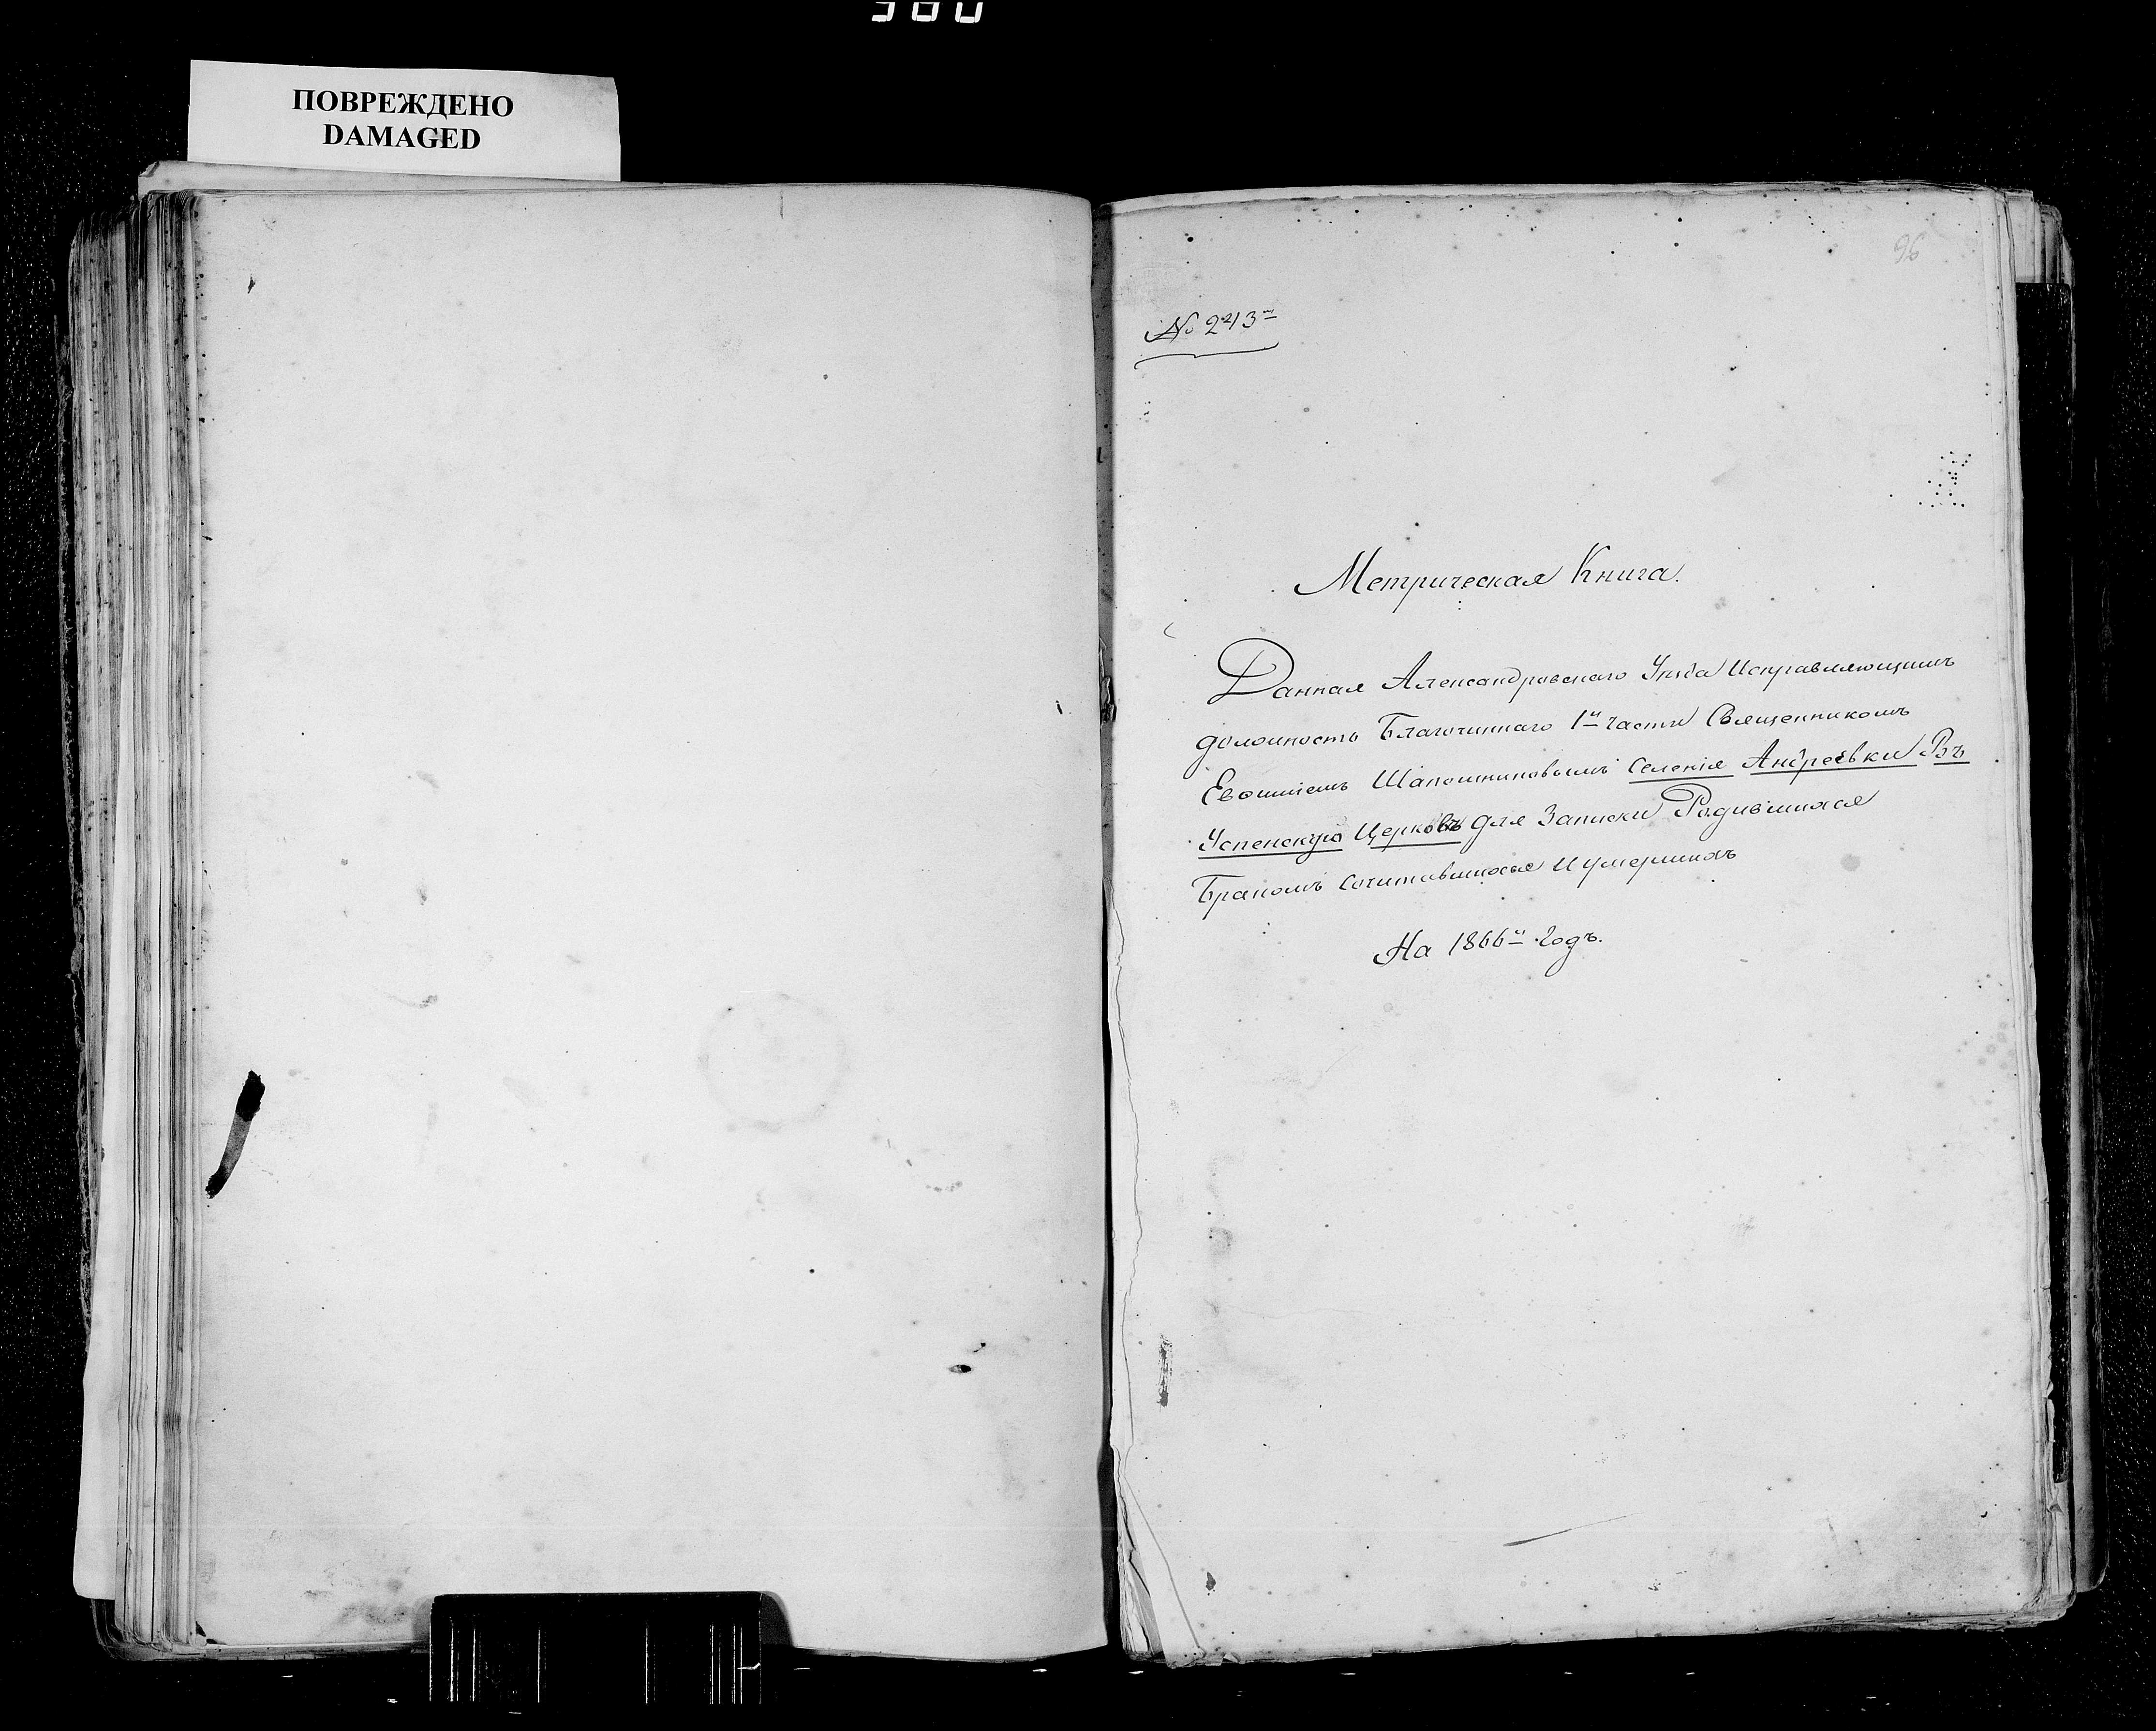 ПОВРЕЖДЕНО
DAMAGED
96
№ 243й
Метрическая Книга.
Данная Александровскаго Уѣзда Исправляющимъ
должность Благочиннаго 1й части Священникомъ
Евфиміемъ Шапошниковымъ селенія Андреевки Въ
Успенскую Церковь для Записки Родившихся
Бракомъ сочитавшихся и умершихъ
На 1866й Годъ.